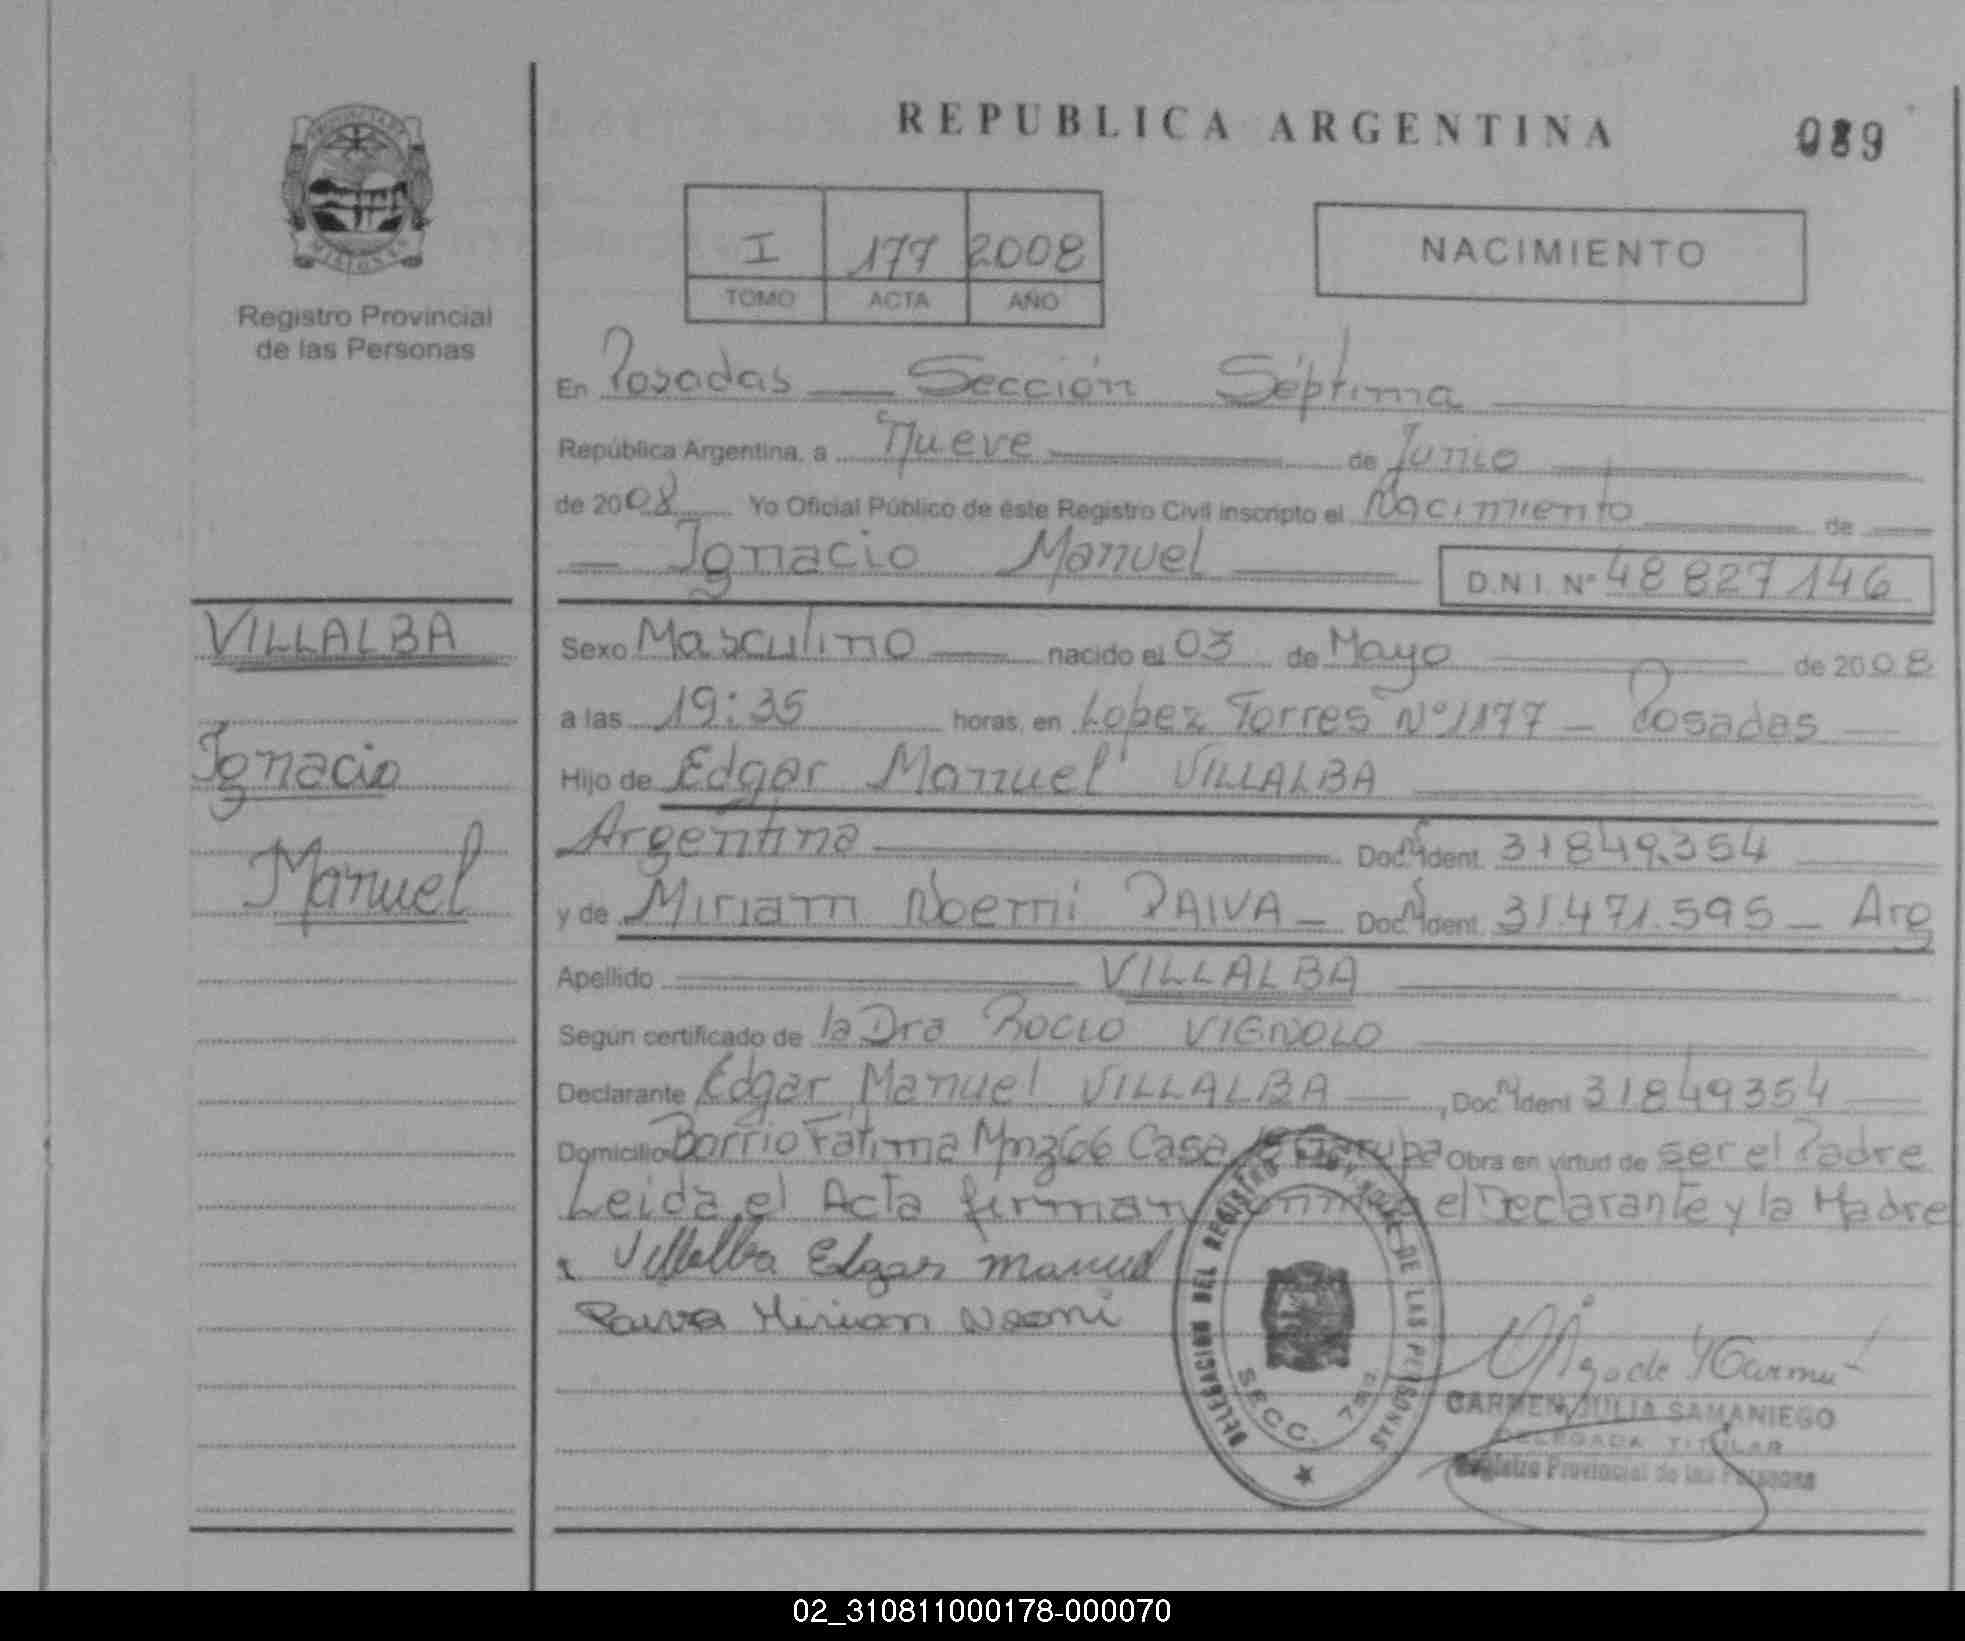 REPUBLICA ARGENTINA
089
I 177 2008
TOMO ACTA AÑO
NACIMIENTO
Registro Provincial
de las Personas
En Posadas — Sección Séptima
República Argentina, a Nueve de Junio
de 2008 Yo Oficial Público de éste Registro Civil inscripto el Nacimiento de
Ignacio Manuel D.N.I. Nº 48 827 146
VILLALBA
Ignacio
Manuel
Sexo Masculino nacido el 03 de Mayo de 2008
a las 19:35 horas, en Lopez Torres Nº 1177 - Posadas
Hijo de Edgar Manuel VILLALBA
Argentina Doc. Ident. 31849.354
y de Miriam Noemi PAIVA - Doc. Ident. 31.471.595 - Arg
Apellido VILLALBA
Según certificado de la Dra ROCIO VIGNOLO
Declarante Edgar Manuel VILLALBA, Doc. Ident 31849354
Domicilio Barrio Fatima Mnz 66 Casa Garupa Obra en virtud de ser el Padre
Leida el Acta firman el Declarante y la Madre
Villalba Edgar manuel
Paiva Mirian Noemi
DELEGACION DEL REGISTRO DE LAS PERSONAS
SECC. 7ma.
CARMEN JULIA SAMANIEGO
DELEGADA TITULAR
Registro Provincial de las Personas
02_310811000178-000070